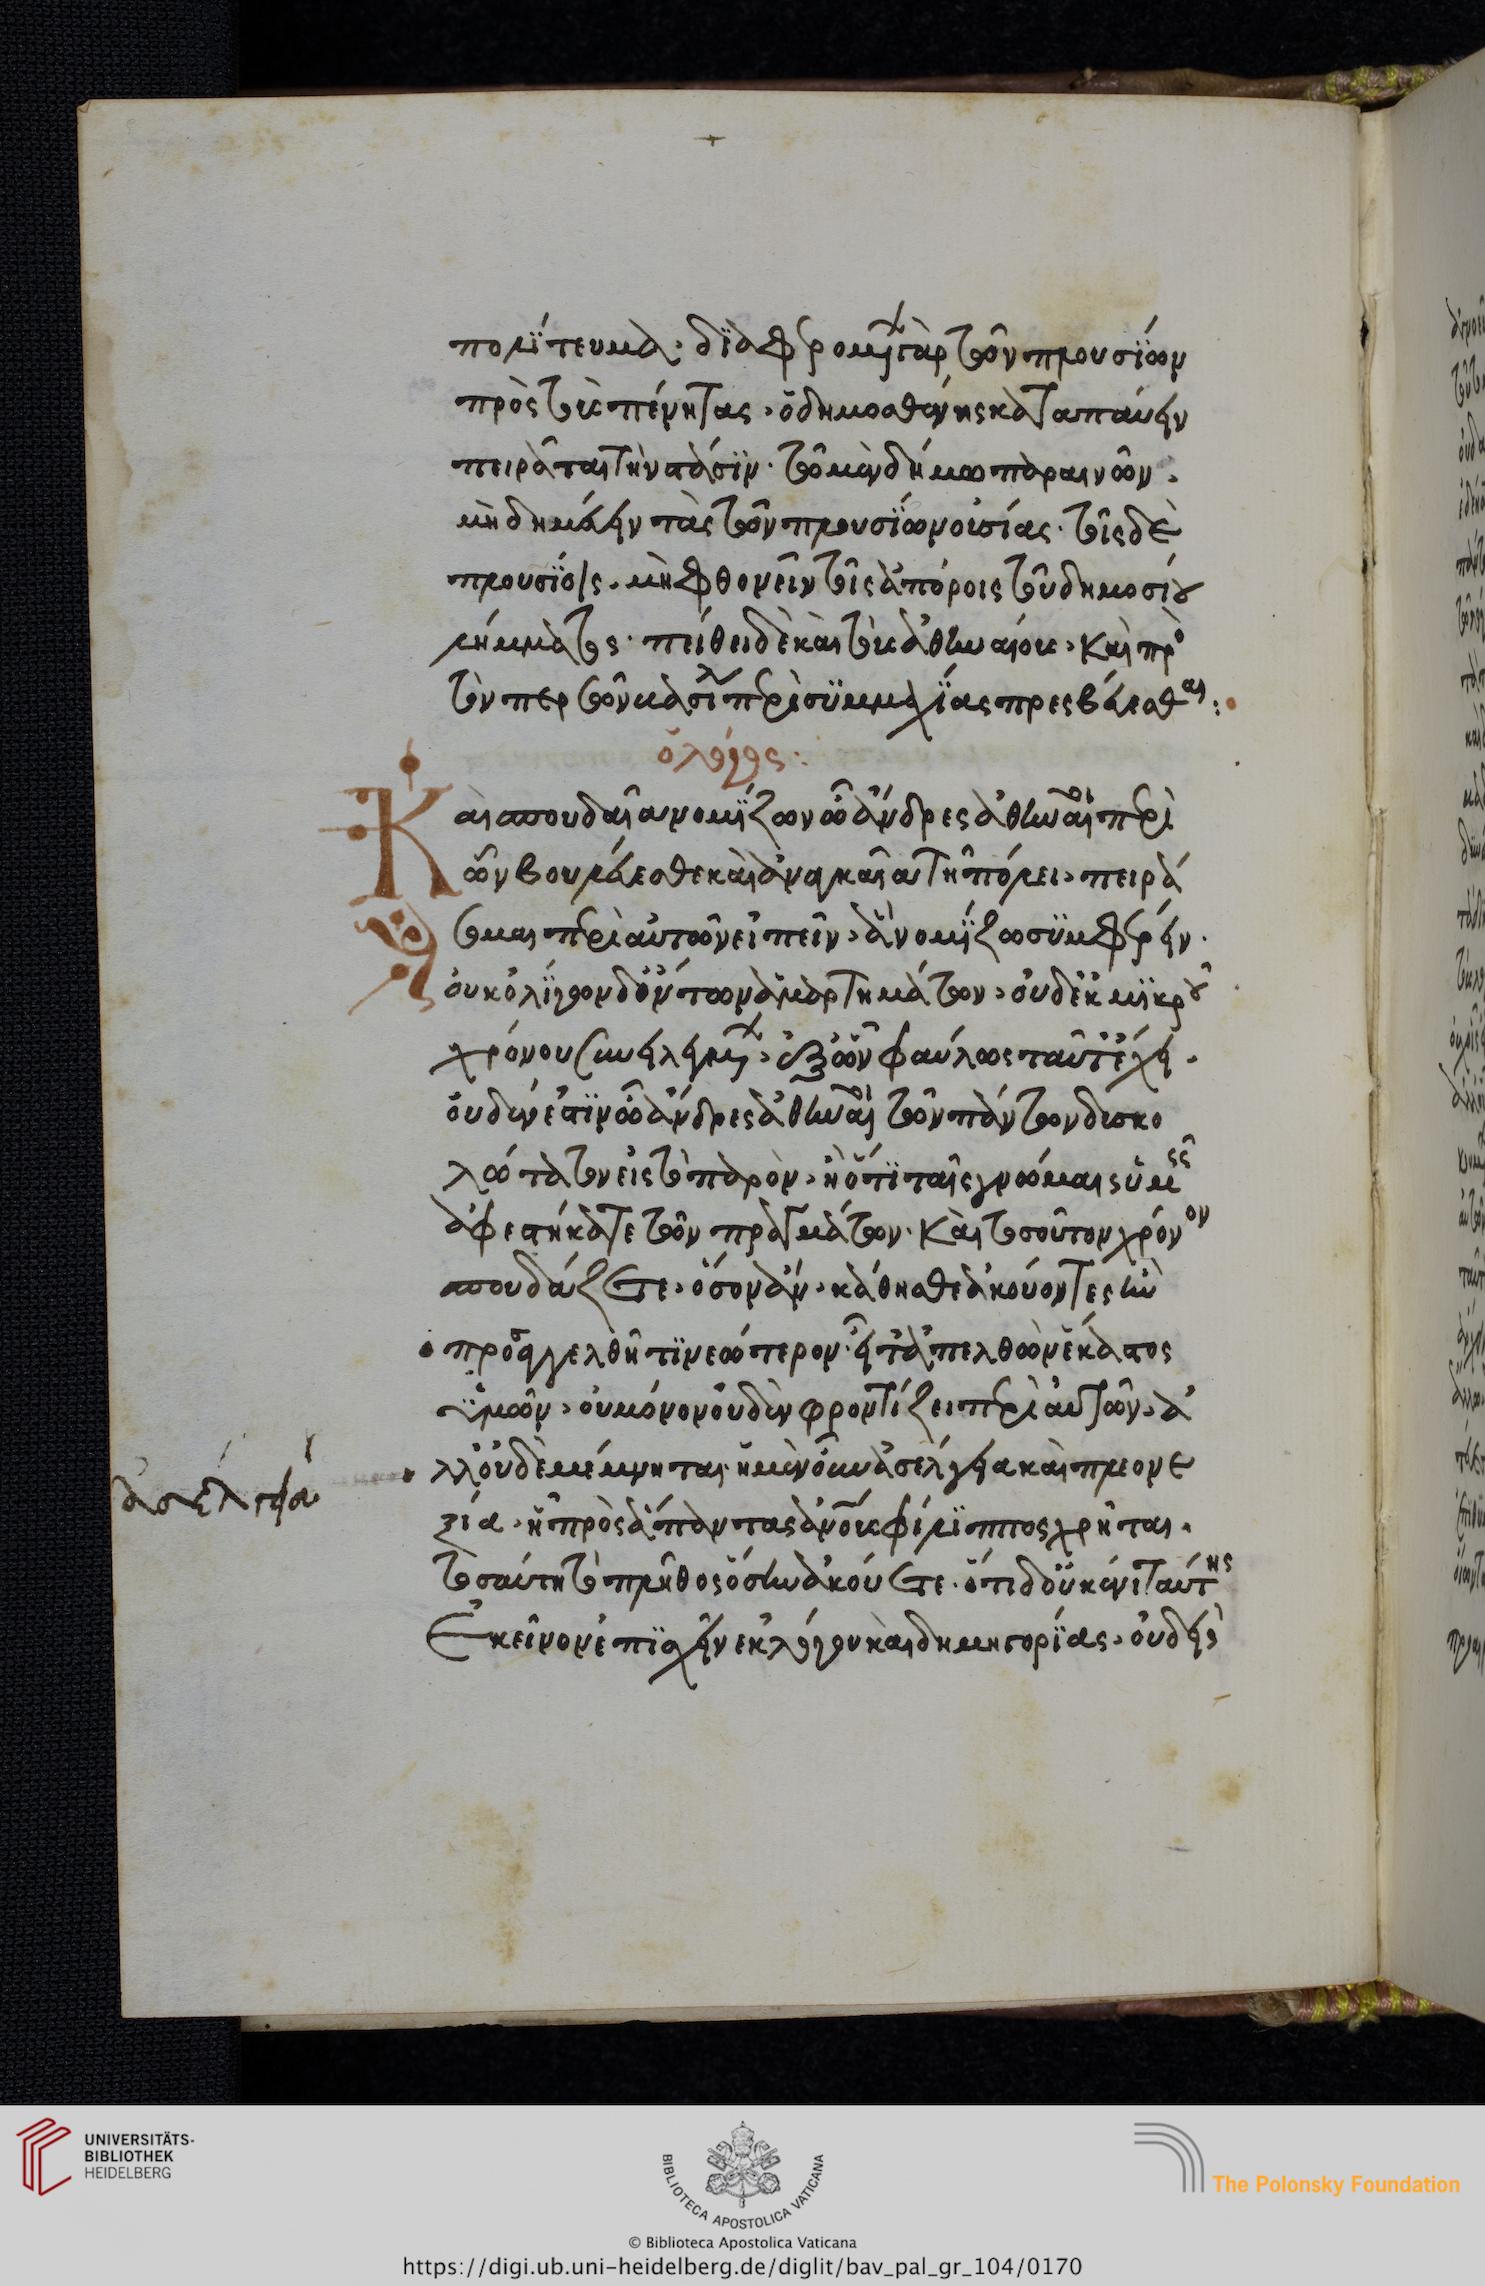 πολίτευμα· διαφερομένων γὰρ τῶν πλουσίων
πρὸς τοὺς πένητας, ὁ δημοσθένης καταπαύειν
πειρᾶται τὴν στάσιν· τῷ μὲν δήμῳ παραινῶν,
μὴ δημεύειν τὰς τῶν πλουσίων οὐσίας· τοῖς δὲ
πλουσίοις, μὴ φθονεῖν τοῖς ἀπόροις τοῦ δημοσίου
λήμματος· πείθει δὲ καὶ τοὺς ἀθηναίους, καὶ πρὸ
τὸν περσῶν βασιλέα περὶ συμμαχίας πρεσβεύεσθαι:
ὁ λόγος:
Καὶ σπουδαῖα νομίζων ὦ ἄνδρες ἀθηναῖοι περὶ
ὧν βουλεύεσθε καὶ ἀναγκαῖα τῇ πόλει, πειρά
σομαι περὶ αὐτῶν εἰπεῖν, ἃ νομίζω συμφέρειν.
οὐκ ὀλίγων δ' ὄντων ἁμαρτημάτων, οὐδ' ἐκ μικροῦ
χρόνου συνειλεγμένων, ἐξ ὧν φαύλως ταῦτ' ἔχει.
οὐδέν ἐστιν ὦ ἄνδρες ἀθηναῖοι τῶν πάντων δισκο
λώτατον εἰς τὸ παρὸν, ἢ ὅτι ταῖς γνώμαις ὑμεῖς
ἀφεστήκατε τῶν πραγμάτων· καὶ τοσοῦτον χρόνον
σπουδάζετε, ὅσον ἂν, κάθησθε ἀκούοντες ἢν
προσαγγελθῇ τι νεώτερον· εἶτ' ἀπελθὼν ἕκαστος
ὑμῶν, οὐ μόνον οὐδὲν φροντίζει περὶ αὐτῶν, ἀ
λλ' οὐδὲ μέμνηται· ἡ μὲν οὖν ἀσέλγεια καὶ πλεονε
ξία, ᾗ πρὸς ἅπαντας ἀνθρώπους φίλιππος χρῆται.
τοσαύτη τὸ πλῆθος ὅσην ἀκούετε· ὅτι δ' οὐκ ἔνι ταύτης
ἐκεῖνον ἐπισχεῖν ἐκ λόγου καὶ δημηγορίας, οὐδεὶς
ἀσέλγεια
UNIVERSITÄTS-
BIBLIOTHEK
HEIDELBERG
BIBLIOTECA APOSTOLICA VATICANA
The Polonsky Foundation
© Biblioteca Apostolica Vaticana
https://digi.ub.uni-heidelberg.de/diglit/bav_pal_gr_104/0170